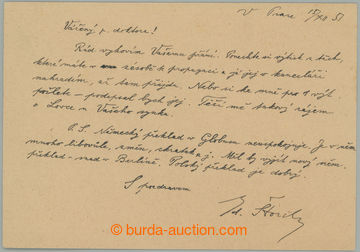 V Praze 15/XII 51
Vážený p. doktore!
Rád vyhovím Vašemu přání. Ponechte si výtisk z těch,
které máte v zásobě k propagaci a já jej v kanceláři
nahradím, až tam přijdu. Nebo si ke mně pro výt.
pošlete – podepsal bych jej. Těší mě takový zájem
o Lovce u Vašeho synka.
P.S. Německý překlad v Globusu neuspokojuje. Je v něm
mnoho libovůle, změn, zkratek a j. Měl by vyjíti nový něm.
překlad – snad v Berlíně. Polský překlad je dobrý.
S pozdravem
Ed. Štorch
burda-auction.com